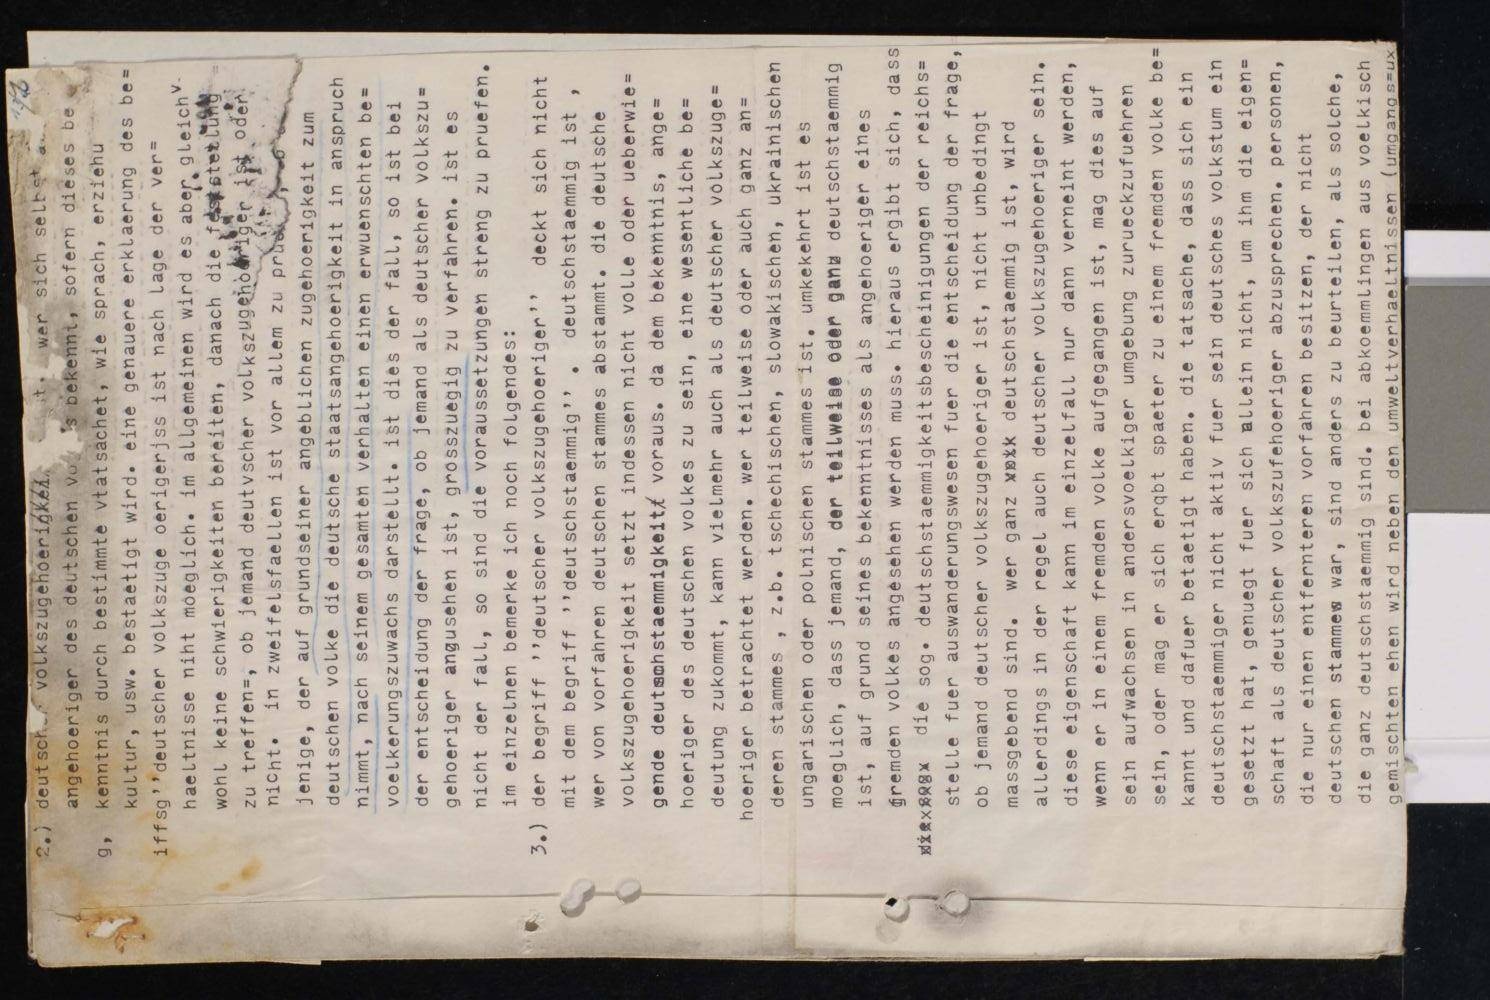 2.) deutsch volkszugehoerigkei it. wer sich selbst a
angehoeriger des deutschen vo s bekennt, sofern dieses be
g, kenntnis durch bestimmte vtatsachet, wie sprach, erziehu
kultur, usw. bestaetigt wird. eine genauere erklaerung des be=
iffsg''deutscher volkszuge oerigerjss ist nach lage der ver=
haeltnisse niht moeglich. im allgemeinen wird es aber gleichv
wohl keine schwierigkeiten bereiten, danach die feststellung =
zu treffen=, ob jemand deutvscher volkszugehoeriger ist oder
nicht. in zweifelsfaellen ist vor allem zu prue , o
jenige, der auf grundseiner angeblichen zugehoerigkeit zum
deutschen volke die deutsche staatsangehoerigkeit in anspruch
nimmt, nach seinem gesamten verhalten einen erwuenschten be=
voelkerungszuwachs darstellt. ist dies der fall, so ist bei
der entscheidung der frage, ob jemand als deutscher volkszu=
gehoeriger angusehen ist, grosszuegig zu verfahren. ist es
nicht der fall, so sind die voraussetzungen streng zu pruefen.
im einzelnen bemerke ich noch folgendes:
3.) der begriff ''deutscher volkszugehoeriger'' deckt sich nicht
mit dem begriff ''deutschstaemmig''. deutschstaemmig ist ,
wer von vorfahren deutschen stammes abstammt. die deutsche
volkszugehoerigkeit setzt indessen nicht volle oder ueberwie=
gende deutschstaemmigkeit voraus. da dem bekenntnis, ange=
hoeriger des deutschen volkes zu sein, eine wesentliche be=
deutung zukommt, kann vielmehr auch als deutscher volkszuge=
hoeriger betrachtet werden. wer teilweise oder auch ganz an=
deren stammes , z.b. tschechischen, slowakischen, ukrainischen
ungarischen oder polnischen stammes ist. umkekehrt ist es
moeglich, dass jemand, der teilweise oder ganz deutschstaemmig
ist, auf grund seines bekenntnisses als angehoeriger eines
fremden volkes angesehen werden muss. hieraus ergibt sich, dass
die sog. deutschstaemmigkeitsbescheinigungen der reichs=
stelle fuer auswanderungswesen fuer die entscheidung der frage,
ob jemand deutscher volkszugehoeriger ist, nicht unbedingt
massgebend sind. wer ganz deutschstaemmig ist, wird
allerdings in der regel auch deutscher volkszugehoeriger sein.
diese eigenschaft kann im einzelfall nur dann verneint werden,
wenn er in einem fremden volke aufgegangen ist, mag dies auf
sein aufwachsen in andersvoelkiger umgebung zurueckzufuehren
sein, oder mag er sich erqbt spaeter zu einem fremden volke be=
kannt und dafuer betaetigt haben. die tatsache, dass sich ein
deutschstaemmiger nicht aktiv fuer sein deutsches volkstum ein
gesetzt hat, genuegt fuer sich allein nicht, um ihm die eigen=
schaft als deutscher volkszufehoeriger abzusprechen. personen,
die nur einen entfernteren vorfahren besitzen, der nicht
deutschen stammes war, sind anders zu beurteilen, als solche,
die ganz deutschstaemmig sind. bei abkoemmlingen aus voelkisch
gemischten ehen wird neben den umweltverhaeltnissen (umgangs=ux